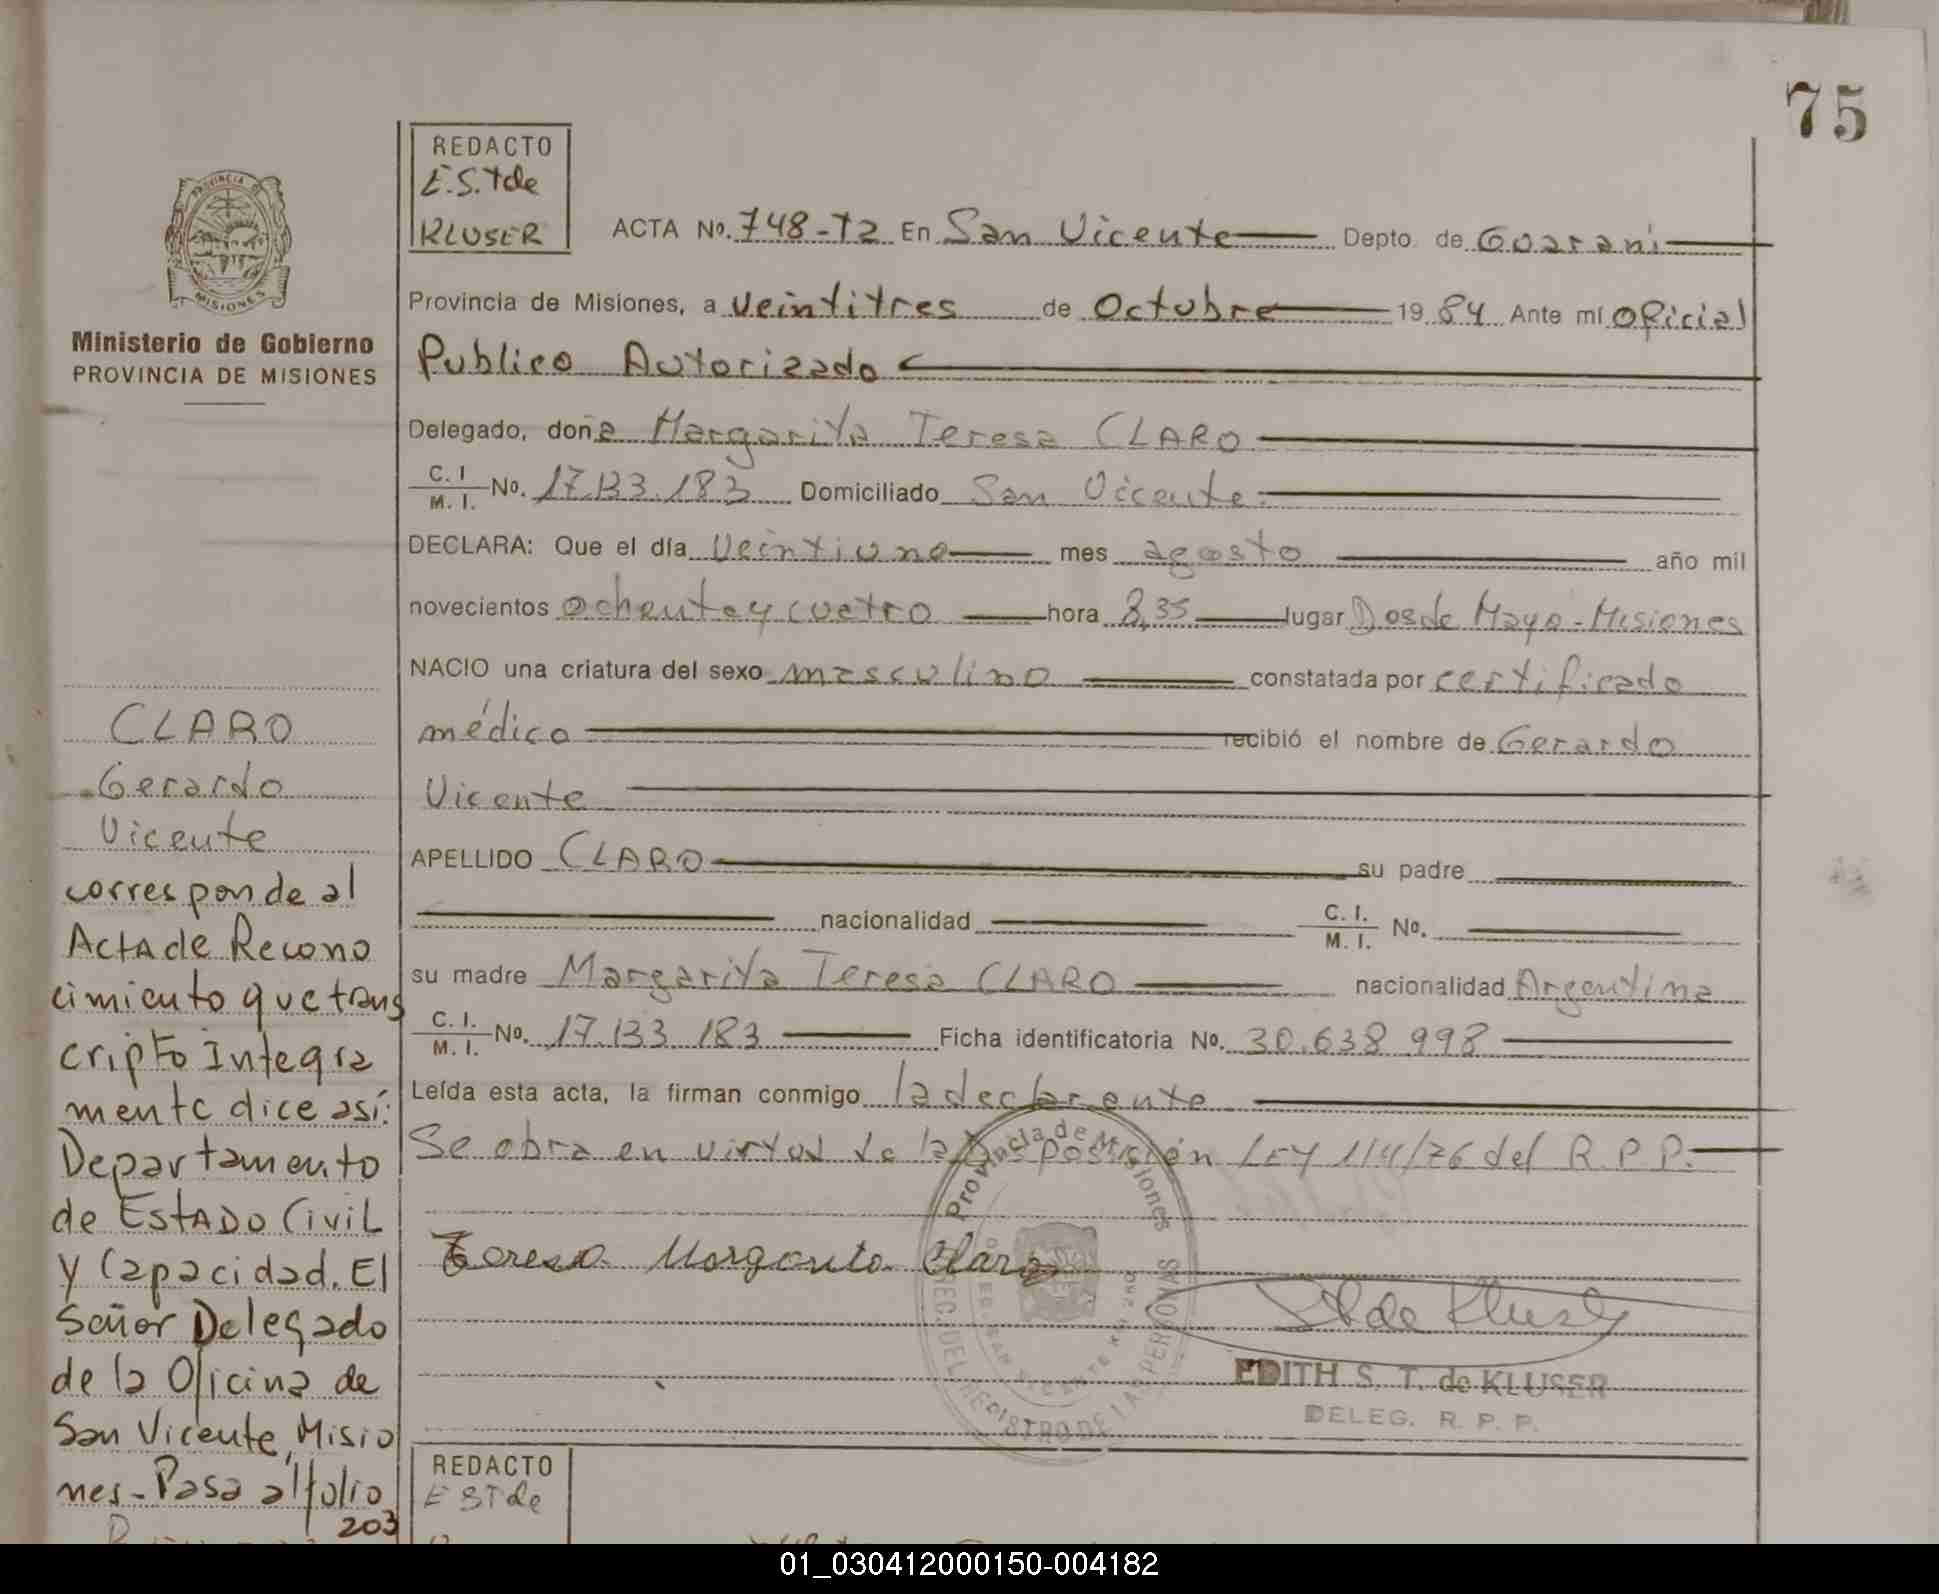 75
REDACTO
E.S.T de
KLUSER
PROVINCIA DE
MISIONES
Ministerio de Gobierno
PROVINCIA DE MISIONES
ACTA No. 748-T2 En San Vicente Depto. de Guarani
Provincia de Misiones, a veintitres de Octubre 19 84 Ante mí Oficial
Publico Autorizado
Delegado, doña Margarita Teresa CLARO
C. I. / M. I. No. 17.133.183 Domiciliado San Vicente.
DECLARA: Que el día veintiuno mes agosto año mil
novecientos ochenta y cuatro hora 8,35 lugar Dos de Mayo-Misiones
NACIO una criatura del sexo masculino constatada por certificado
médico recibió el nombre de Gerardo
Vicente
APELLIDO CLARO su padre
nacionalidad C. I. / M. I. No.
su madre Margarita Teresa CLARO nacionalidad Argentina
C. I. / M. I. No. 17.133.183 Ficha identificatoria No. 30.638.998
Leída esta acta, la firman conmigo la declarante
Se obra en virtud de la Disposición LEY 114/76 del R.P.P.
Teresa Margarita Claro
Provincia de Misiones
EDITH S. T. de KLUSER
DELEG. R. P. P.
CLARO
Gerardo
Vicente
corresponde al
Acta de Recono
cimiento que trans
cripto Integra
mente dice así:
Departamento
de ESTADO CiviL
y Capacidad. El
Señor Delegado
de la Oficina de
San Vicente, Misio
nes- Pasa al folio
203
REDACTO
E ST de
01_030412000150-004182